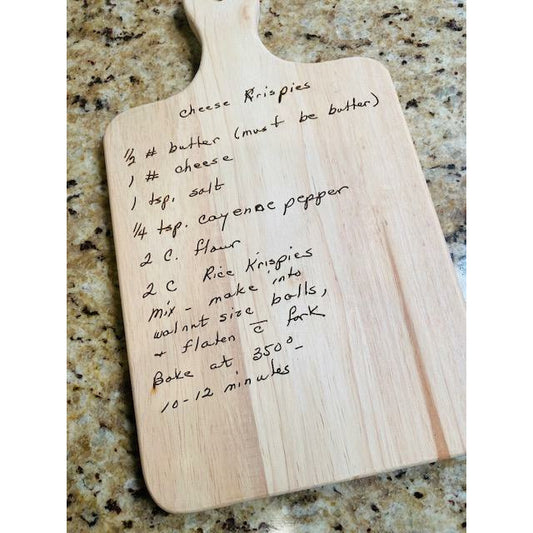 cheese Krispies
½ # butter (must be butter)
1 # cheese
1 tsp. salt
¼ tsp. cayenne pepper
2 C. flour
2 C Rice Krispies
mix - make into
walnut size balls,
+ flaten c̅ fork
Bake at 350° -
10-12 minutes